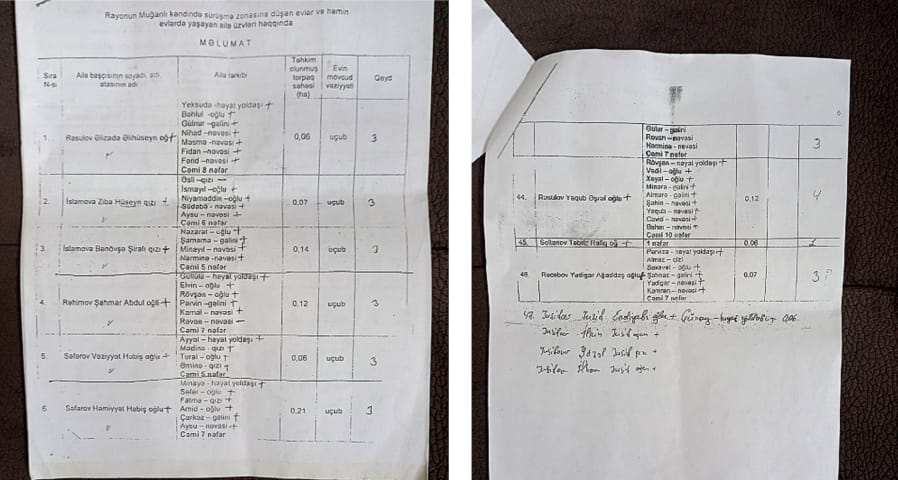 Rayonun Muğanlı kəndində sürüşmə zonasına düşən evlər və həmin
evlərdə yaşayan ailə üzvləri haqqında
MƏLUMAT
Sıra N-si
Ailə başçısının soyadı, adı atasının adı
Ailə tərkibi
Təhkim olunmuş torpaq sahəsi (ha)
Evin mövcud vəziyyəti
Qeyd
1.
Rəsulov Əlizadə Əlihüseyn oğ +
Yeksuda -həyat yoldaşı +
Bəhlul -oğlu +
Gülnur -gəlini +
Nihad -nəvəsi +
Məsmə -nəvəsi +
Fidan -nəvəsi +
Fərid -nəvəsi +
Cəmi 8 nəfər
0,06
uçub
3
2.
İslamova Ziba Hüseyn qızı +
-qızı —
İsmayıl -oğlu +
Niyaməddin -oğlu +
Südabə - nəvəsi +
Aysu - nəvəsi +
Cəmi 6 nəfər
0,07
uçub
3
3.
İslamova Bənövşə Şirəli qızı +
Nəzarət - oğlu +
Şamama - gəlini +
Minayıl - nəvəsi +
Nərminə -nəvəsi +
Cəmi 5 nəfər
0,14
uçub
3
4.
Rəhimov Şahmar Abdul oğli +
- həyat yoldaşı +
Elvin - oğlu +
Rövşən - oğlu +
Pərvin -gəlini +
Kamal - nəvəsi +
Rəvan - nəvəsi —
Cəmi 7 nəfər
0,12
uçub
3
5.
Səfərov Vəziyyət Həbiş oğlu +
Ayyəl - həyat yoldaşı +
Mədinə - qızı +
Tural - oğlu +
Əminə - qızı +
Cəmi 5 nəfər
0,06
uçub
3
6.
Səfərov Həmiyyət Həbiş oğlu +
Minayə - həyat yoldaşı +
Səfər – oğlu +
Fatma - qızı +
Amid – oğlu +
Çərkəz – gəlini +
Aysu – nəvəsi +
Cəmi 7 nəfər
0,21
uçub
3
Gülər – gəlini
Rəvan – nəvəsi
Nərminə - nəvəsi
Cəmi 7 nəfər
3
44.
Rəsulov Yaqub Əşrəf oğlu +
Rövşən – həyat yoldaşı +
Vədi - oğlu +
Xəyal – oğlu +
Minarə - gəlini +
Almara - gəlini +
Şahin – nəvəsi +
Yaqub – nəvəsi +
Cavid – nəvəsi +
Bahar – nəvəsi +
Cəmi 10 nəfər
0,12
4
45.
Soltanov Təbriz Rafiq oğ +
1 nəfər
0,06
1
46.
Rəcəbov Yadigar Ağadaş oğlu +
Pərvizə - həyat yoldaşı +
Almaz – qızı
Səxavət – oğlu +
Şahnaz – gəlini +
Yadigar – nəvəsi +
Kamran – nəvəsi +
Cəmi 7 nəfər
0,07
3
47.